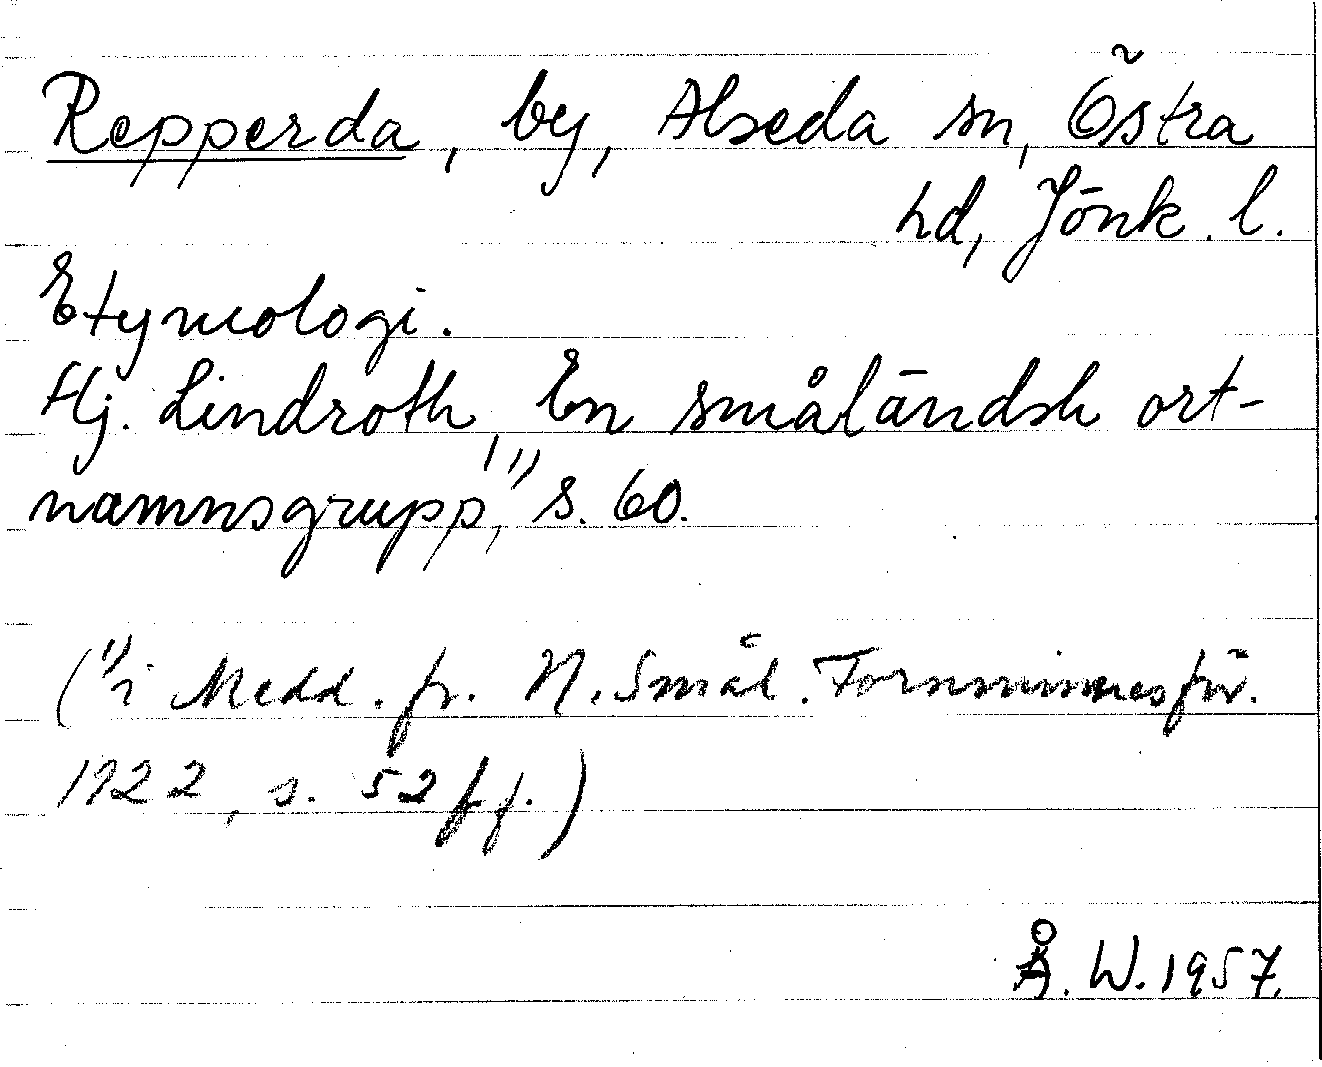 Repperda, by, Alseda sn, Östra
hd, Jönk. l.
Etymologi.
Hj. Lindroth, En småländsk ort-
namnsgrupp,¹⁾ s. 60.
(¹⁾ i Medd. fr. N. Smål. Fornminnesför.
1922, s. 52 ff.)
Å. W. 1957.